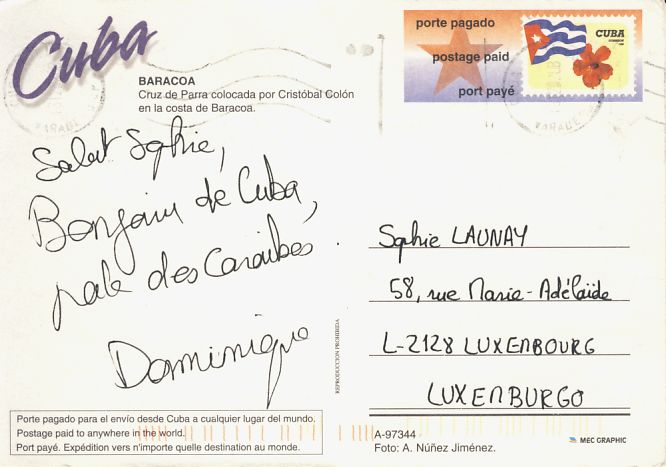 Cuba
porte pagado
postage paid
port payé
CUBA
BARACOA
Cruz de Parra colocada por Cristóbal Colón
en la costa de Baracoa.
Salut Sophie,
Bonjour de Cuba,
des Caraïbes.
Dominique
Sophie LAUNAY
58, rue Marie-Adélaïde
L-2128 LUXENBOURG
LUXENBURGO
REPRODUCCIÓN PROHIBIDA
Porte pagado para el envío desde Cuba a cualquier lugar del mundo.
Postage paid to anywhere in the world.
Port payé. Expédition vers n'importe quelle destination au monde.
A-97344
Foto: A. Núñez Jiménez.
MEC GRAPHIC